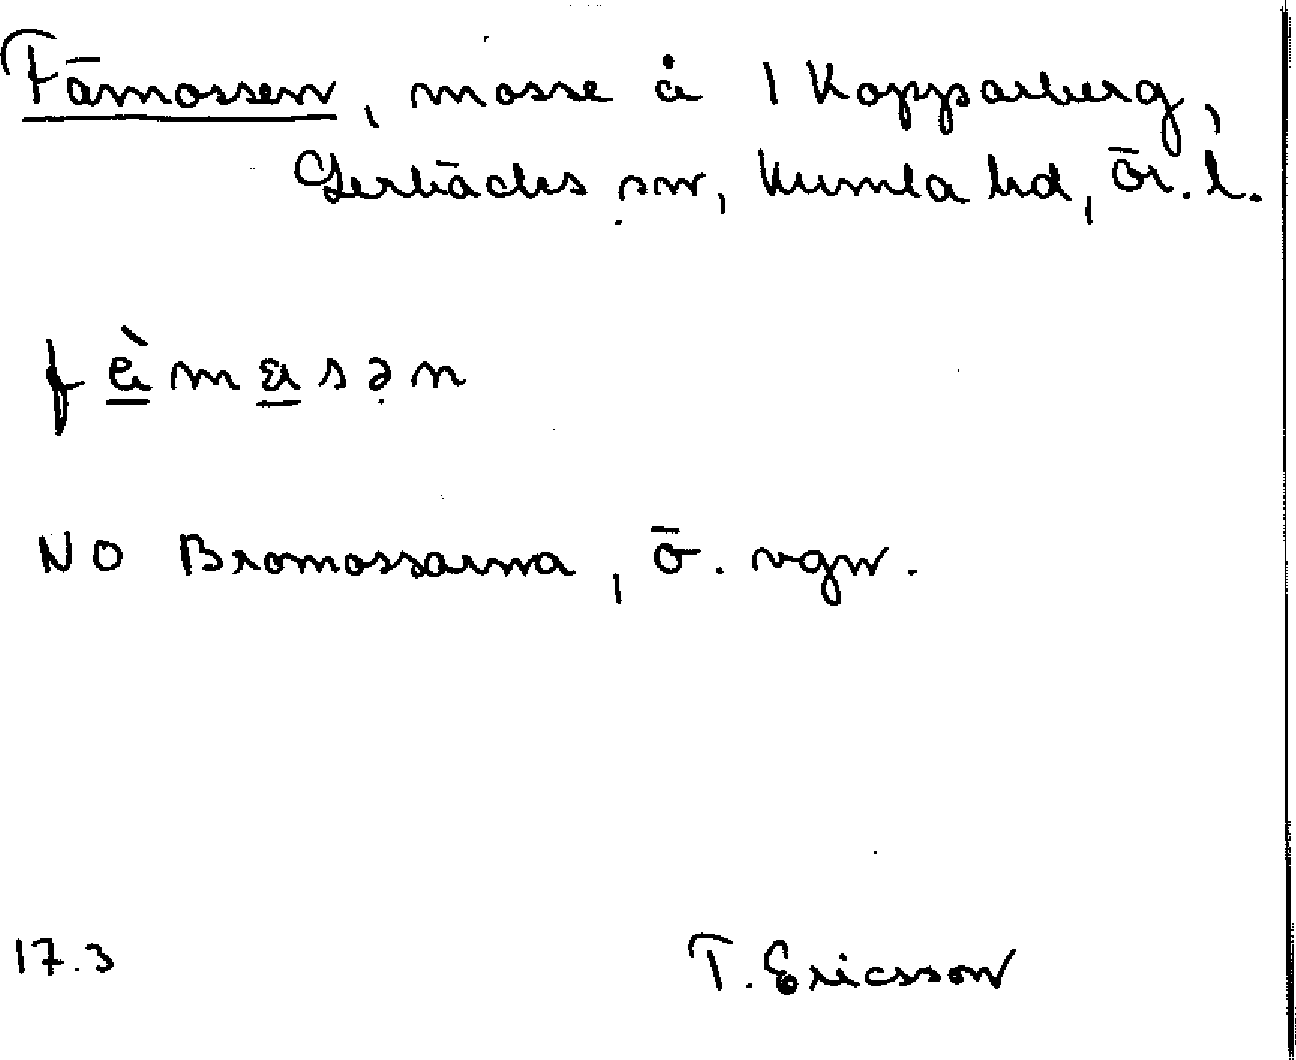 Fämossen, mosse å 1 Kopparberg,
Lerbäcks sn, Kumla hd, Ör. l.
NO Bromossarna, ö. vgn.
17.3
T. Ericsson